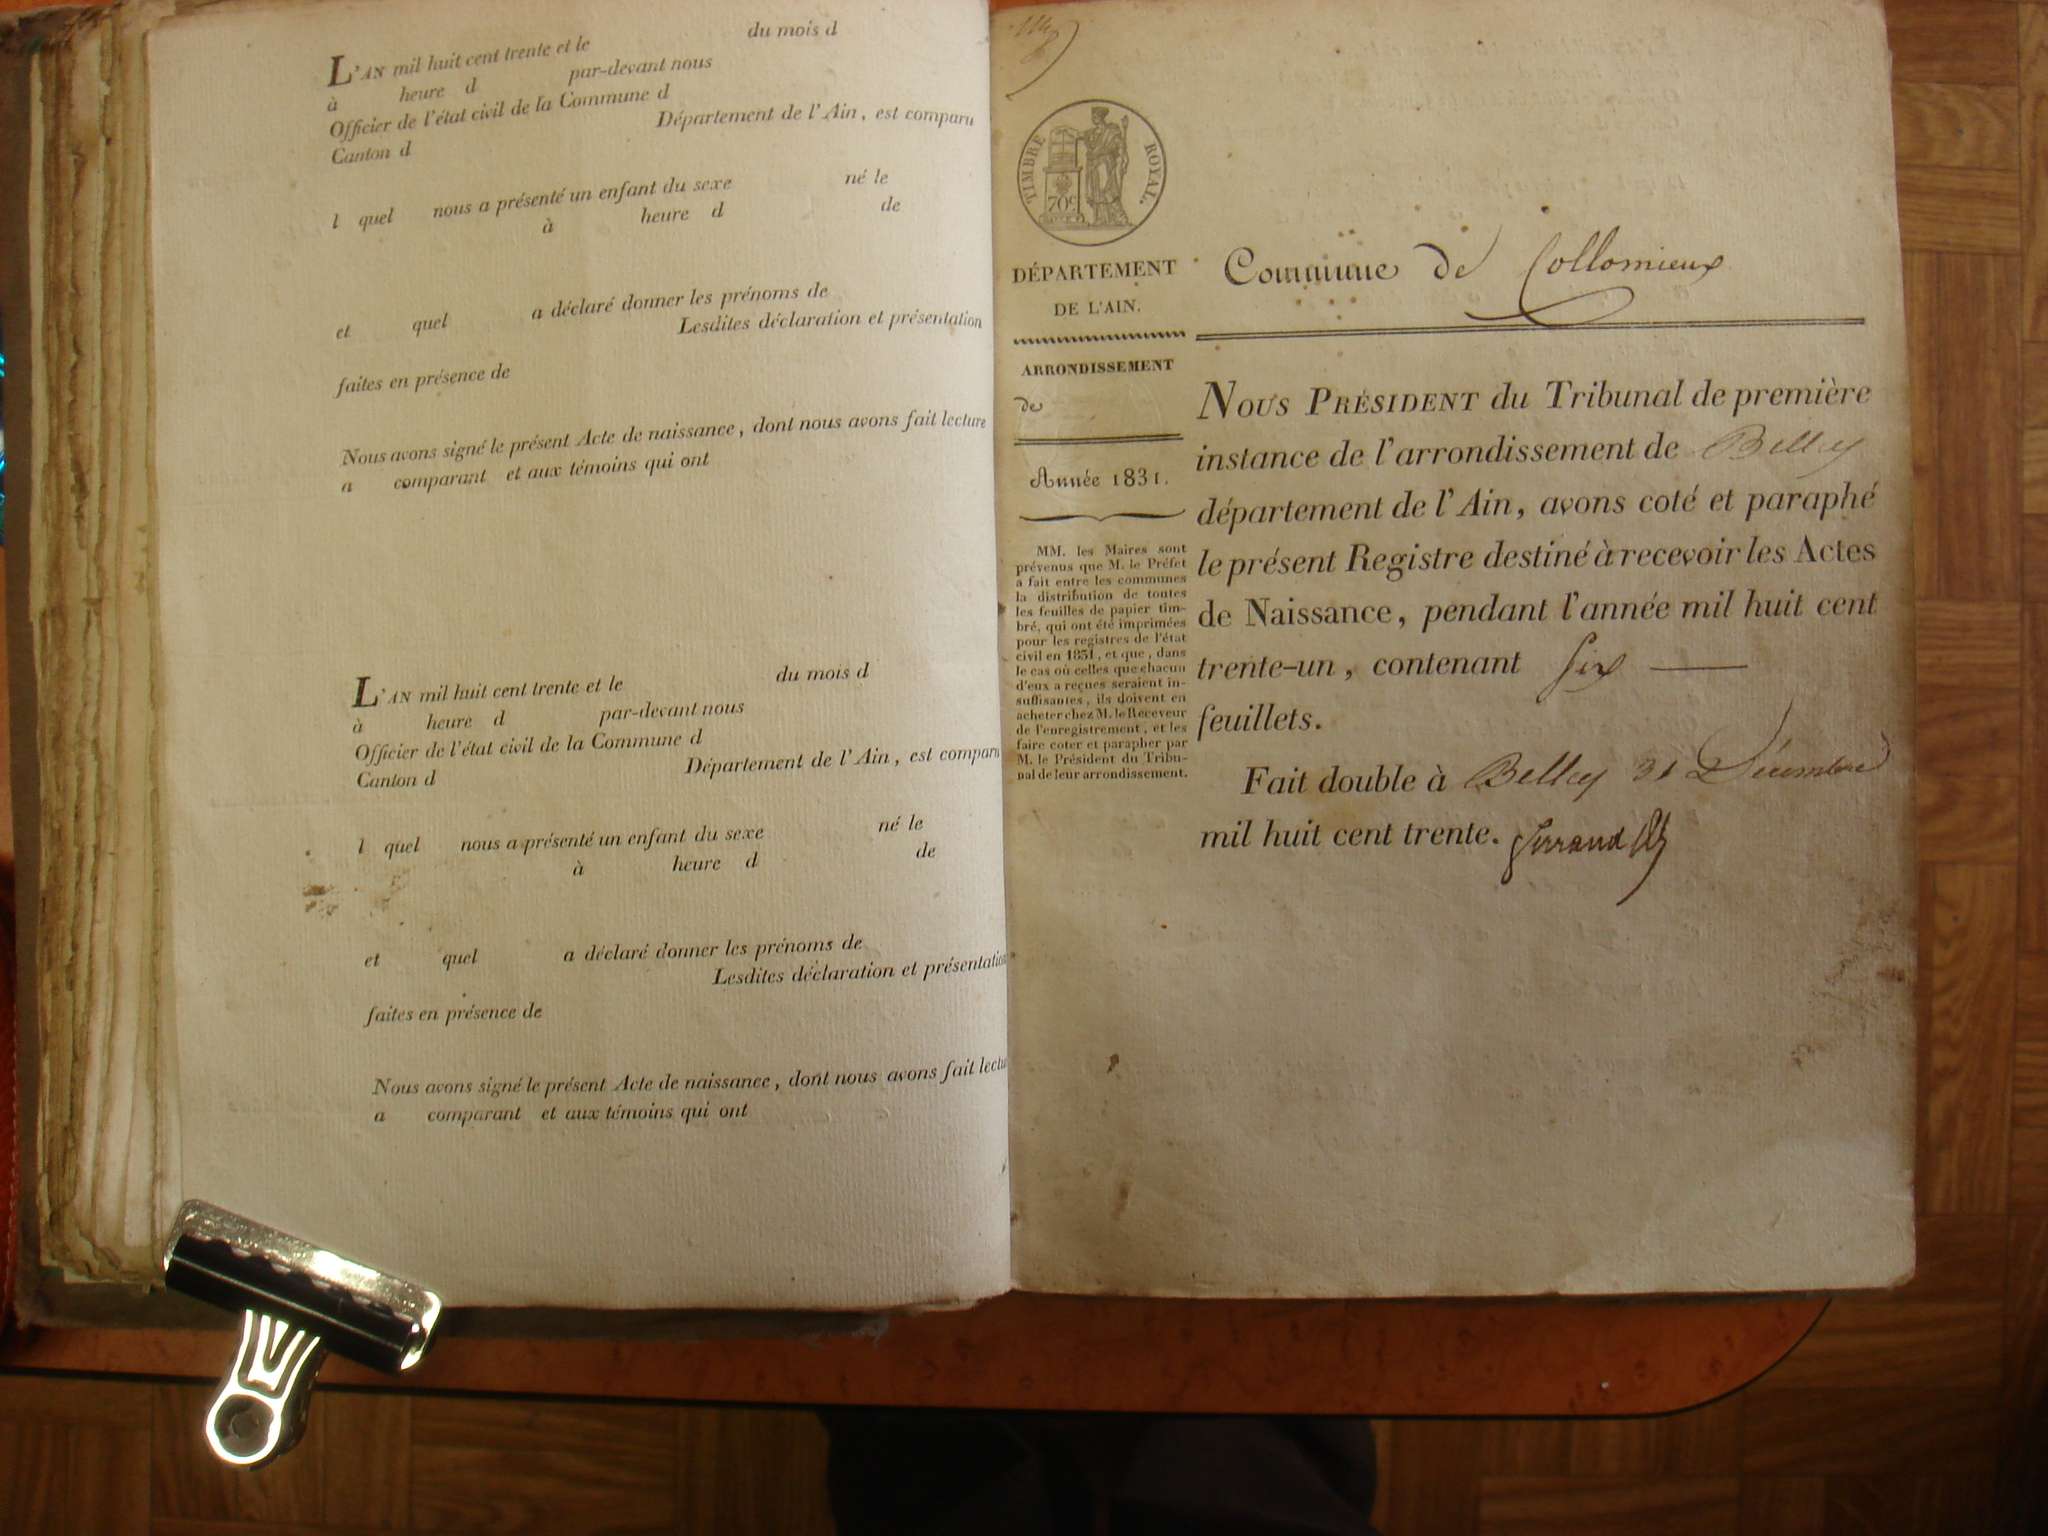 L'AN mil huit cent trente et le du mois d
à heure d par-devant nous
Officier de l'état civil de la Commune d
Canton d Département de l'Ain, est comparu
l quel nous a présenté un enfant du sexe né le
à heure d de
et quel a déclaré donner les prénoms de
Lesdites déclaration et présentation
faites en présence de
Nous avons signé le présent Acte de naissance, dont nous avons fait lecture
a comparant et aux témoins qui ont
L'AN mil huit cent trente et le du mois d
à heure d par-devant nous
Officier de l'état civil de la Commune d
Canton d Département de l'Ain, est comparu
l quel nous a présenté un enfant du sexe né le
à heure d de
et quel a déclaré donner les prénoms de
Lesdites déclaration et présentation
faites en présence de
Nous avons signé le présent Acte de naissance, dont nous avons fait lectu
a comparant et aux témoins qui ont
TIMBRE ROYAL.
70c
DÉPARTEMENT
DE L'AIN.
ARRONDISSEMENT
de
Année 1831.
MM. les Maires sont
prévenus que M. le Préfet
a fait entre les communes
la distribution de toutes
les feuilles de papier tim-
bré, qui ont été imprimées
pour les registres de l'état
civil en 1831, et que, dans
le cas où celles que chacun
d'eux a reçues seraient in-
suffisantes, ils doivent en
acheter chez M. le Receveur
de l'enregistrement, et les
faire coter et parapher par
M. le Président du Tribu-
nal de leur arrondissement.
Commune de Collomieux
NOUS PRÉSIDENT du Tribunal de première
instance de l'arrondissement de Belley
département de l'Ain, avons coté et paraphé
le présent Registre destiné à recevoir les Actes
de Naissance, pendant l'année mil huit cent
trente-un, contenant Six
feuillets.
Fait double à Belley 31 Décembre
mil huit cent trente.